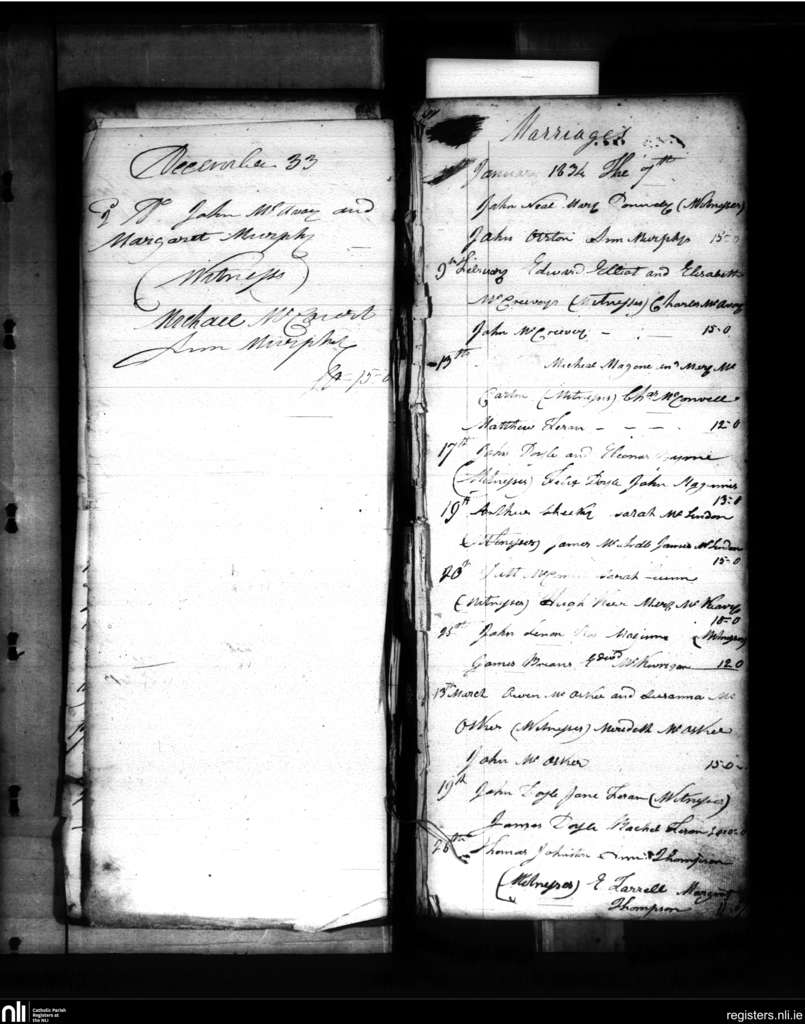 December 33
John McAvoy and
Margaret Murphy
(Witnesses)
Michael
Ann Murphy
15-0
Marriages
January 1834 The 7th
John Neal Mary Donnely (Witnesses)
John Ann Murphy 15-0
9th February Edward Elliot and Elizabeth
McCreevy (Witnesses) Charles McAvoy
John McCreevy - - 15-0
13th Micheal Magone and Mary Mc
Cartin (Witnesses) Chas McConvell
Matthew Feran - - - 12-0
17th John Doyle and Eleonor
(Witnesses) Felix Doyle John Magennis
13-
19th Arthur Sarah McLindon
(Witnesses) James James McLindon
15-0
20th Sarah
(Witnesses) Hugh Mary
25th John (Witnesses)
James 12-0
13th March Owen McOsker and Susanna Mc
Osker (Witnesses) Meredith McOsker
John McOsker 15-0
19th John Doyle Jane Feran (Witnesses)
James Doyle Rachel Feran
26th Thomas Johnston Thompson
(Witnesses) E Farrell Margaret
Thompson
nli
Catholic Parish
Registers at
the NLI
registers.nli.ie